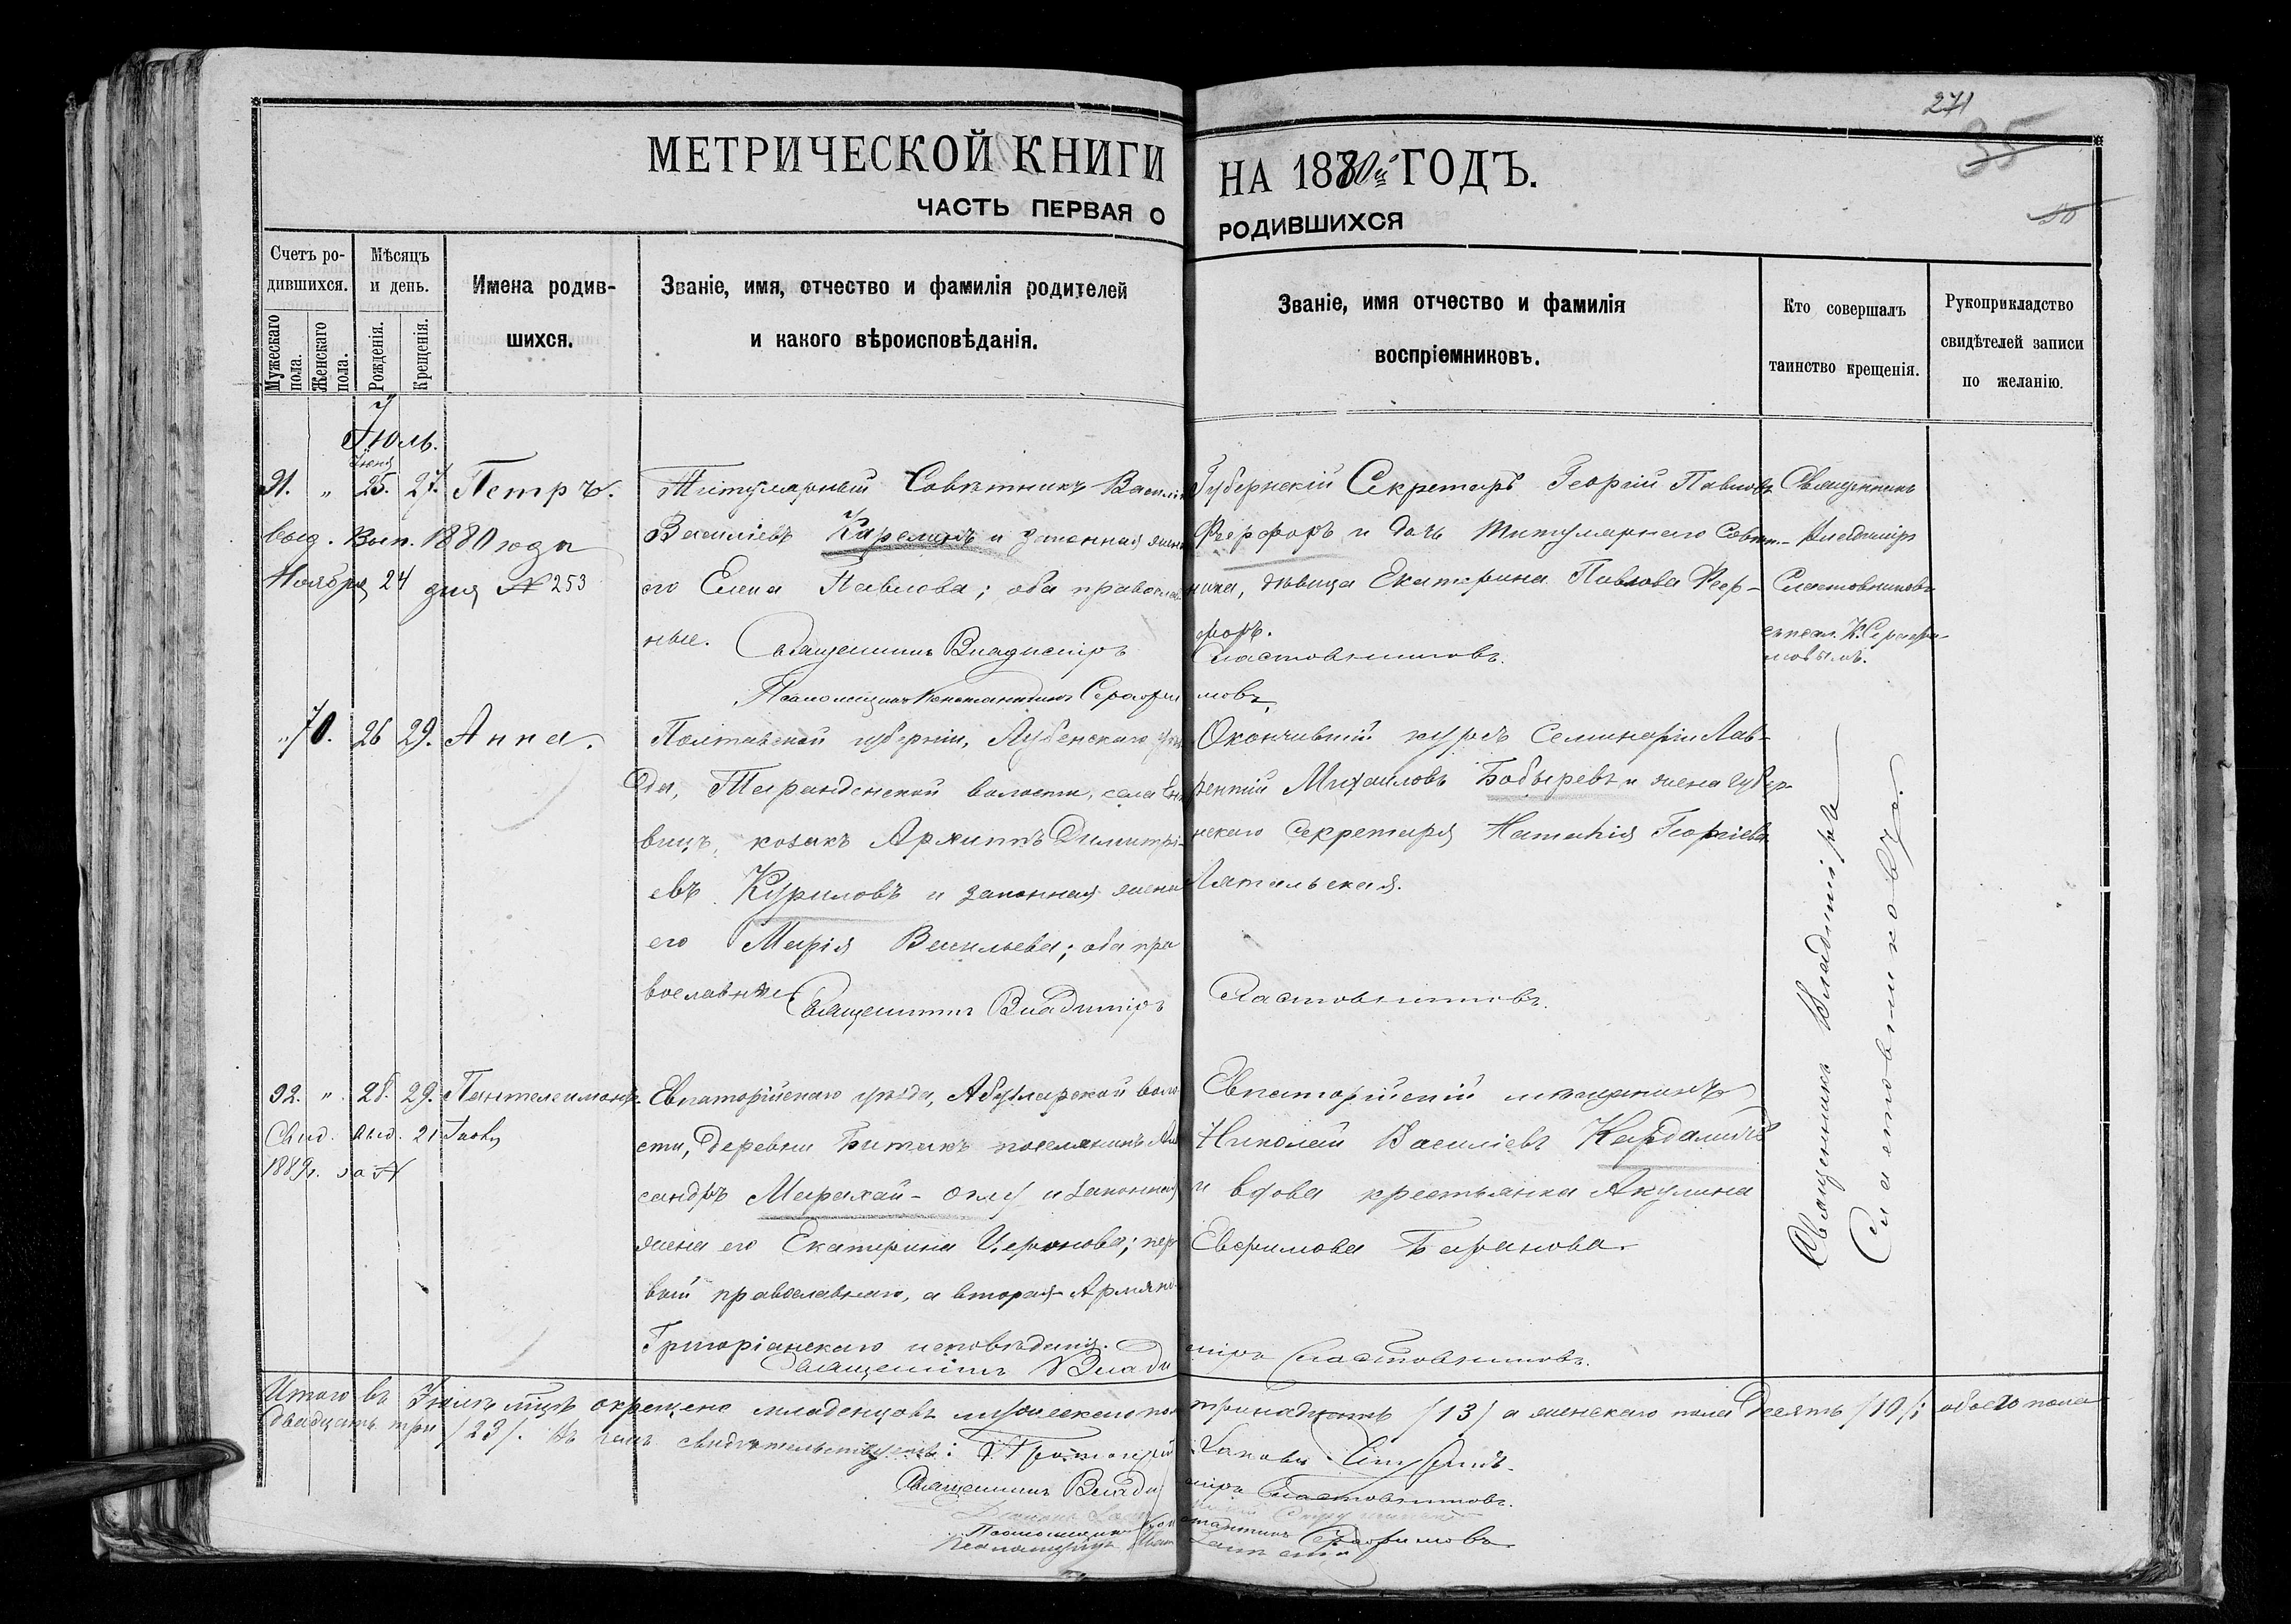 271
35
50
МЕТРИЧЕСКОЙ КНИГИ НА 1880й ГОДЪ.
ЧАСТЬ ПЕРВАЯ О РОДИВШИХСЯ
Счетъ родившихся.
Мужескаго пола.
Женскаго пола.
Мѣсяцъ и день.
Рожденія.
Крещенія.
Имена родив-
шихся.
Званіе, имя, отчество и фамилія родителей
и какого вѣроисповѣданія.
Званіе, имя отчество и фамилія
воспріемниковъ.
Кто совершалъ
таинство крещенія.
Рукоприкладство
свидѣтелей записи
по желанію.
Іюль.
Іюня
91. " 25. 27. Петръ.
выд. Вып. 1880 года
Ноября 24 дня № 253
Титулярный Совѣтникъ Василій
Василіевъ Карелинъ и законная жена
его Елена Павлова; оба православ-
ные. Священникъ Владиміръ Сластовниковъ.
Псаломщикъ Константинъ Серафимовъ
Губернскій Секретарь Георгій Павловъ
Ферфоръ и дочь Титулярнаго Совѣт-
ника, дѣвица Екатерина Павлова Фер-
форъ.
Священникъ
Владиміръ
Сластовниковъ
съ псал. К. Серафи-
мовымъ.
" 70. 26 29. Анна.
Полтавской губерніи, Лубенскаго уѣз-
да, Тарандинской волости, села
козакъ Архиппъ Димитрі-
евъ Куриловъ и законная жена
его Марія Васильева; оба пра-
вославные Священникъ Владиміръ Сластовниковъ.
Окончившій курсъ Семинаріи Лав-
рентій Михаиловъ Бобыревъ и жена губер-
нскаго секретаря Наталія Георгіева
Лятальская.
92. " 28. 29. Пантелеимонъ.
Свид. выд. 21
1889г. за №
Евпаторійскаго уѣзда, Абузларской воло-
сти, деревни Битакъ поселянинъ Алек-
сандръ Марахай-Оглу и законная
жена его Екатерина Иеронова; пер-
вый православнаго, а вторая Армяно-
Григоріанскаго исповѣданія.
Священникъ Владиміръ Сластовниковъ.
Евпаторійскій мѣщанинъ
Николай Василіевъ Кардамичъ
и вдова крестьянка Акулина
Евфимова Баранова.
Священникъ Владиміръ
Сластовниковъ.
Итого въ Іюлѣ м-цѣ окрещено младенцовъ мужескаго пола тринадцать /13/ а женскаго пола десять /10/; обоего пола
двадцать три /23/. Въ чемъ свидѣтельствуемъ: Протоіерей
Священникъ Владиміръ Сластовниковъ.
Псаломщикъ Константинъ Серафимовъ